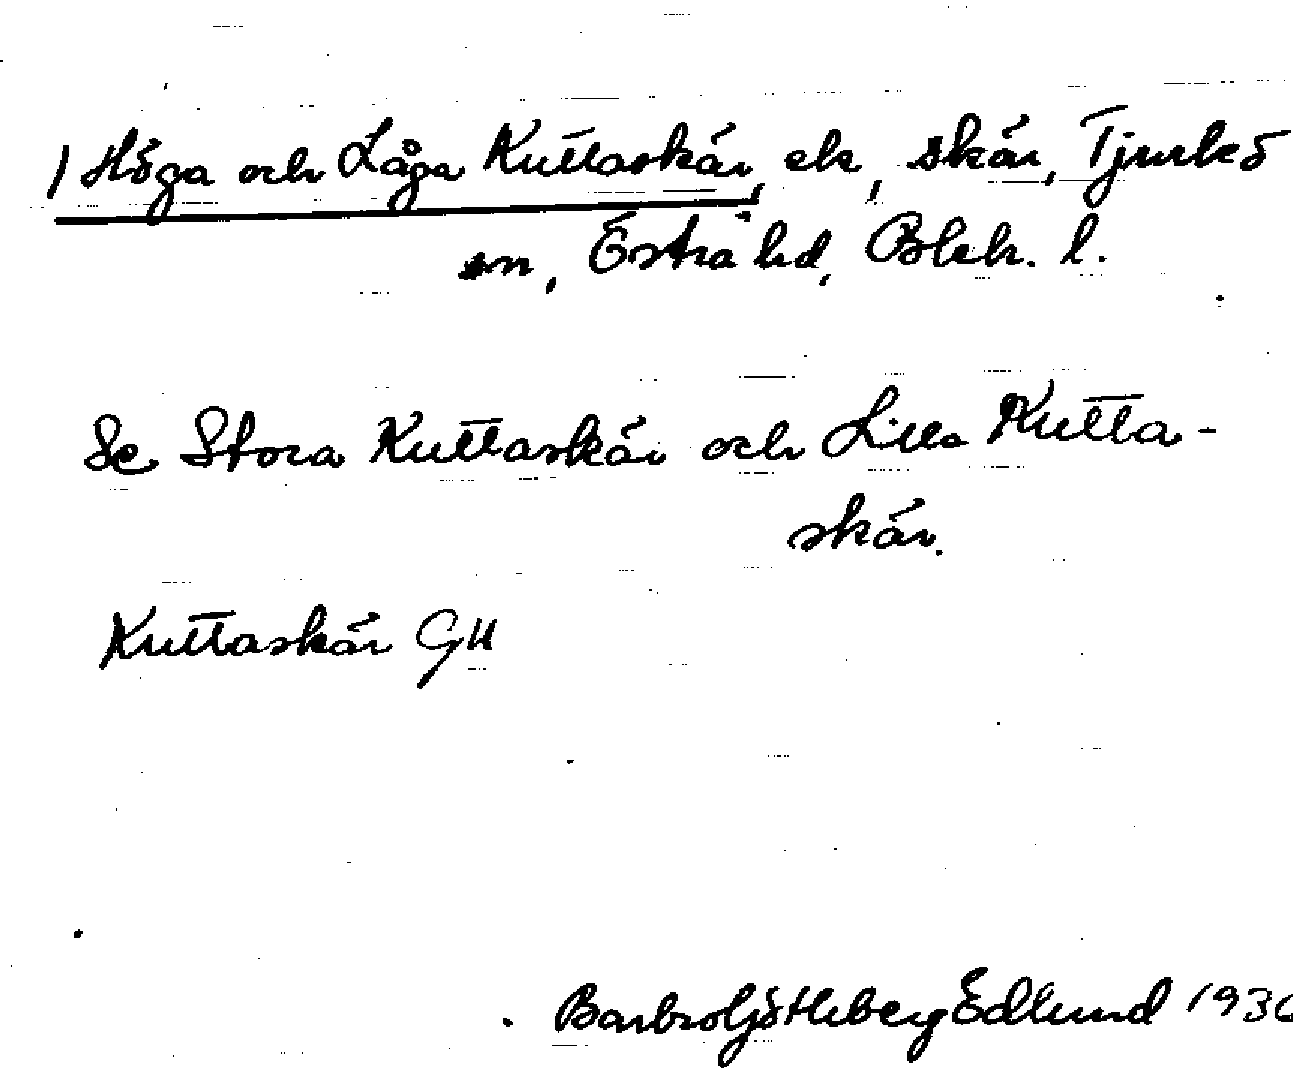 ) Höga och Låga Kuttaskär, ek, skär, Tjurkö
sn, Östra hd, Blek. l.
Se Stora Kuttaskär och Lilla Kutta-
skär.
Kuttaskär GH
Barbro Götheberg Edlund 193